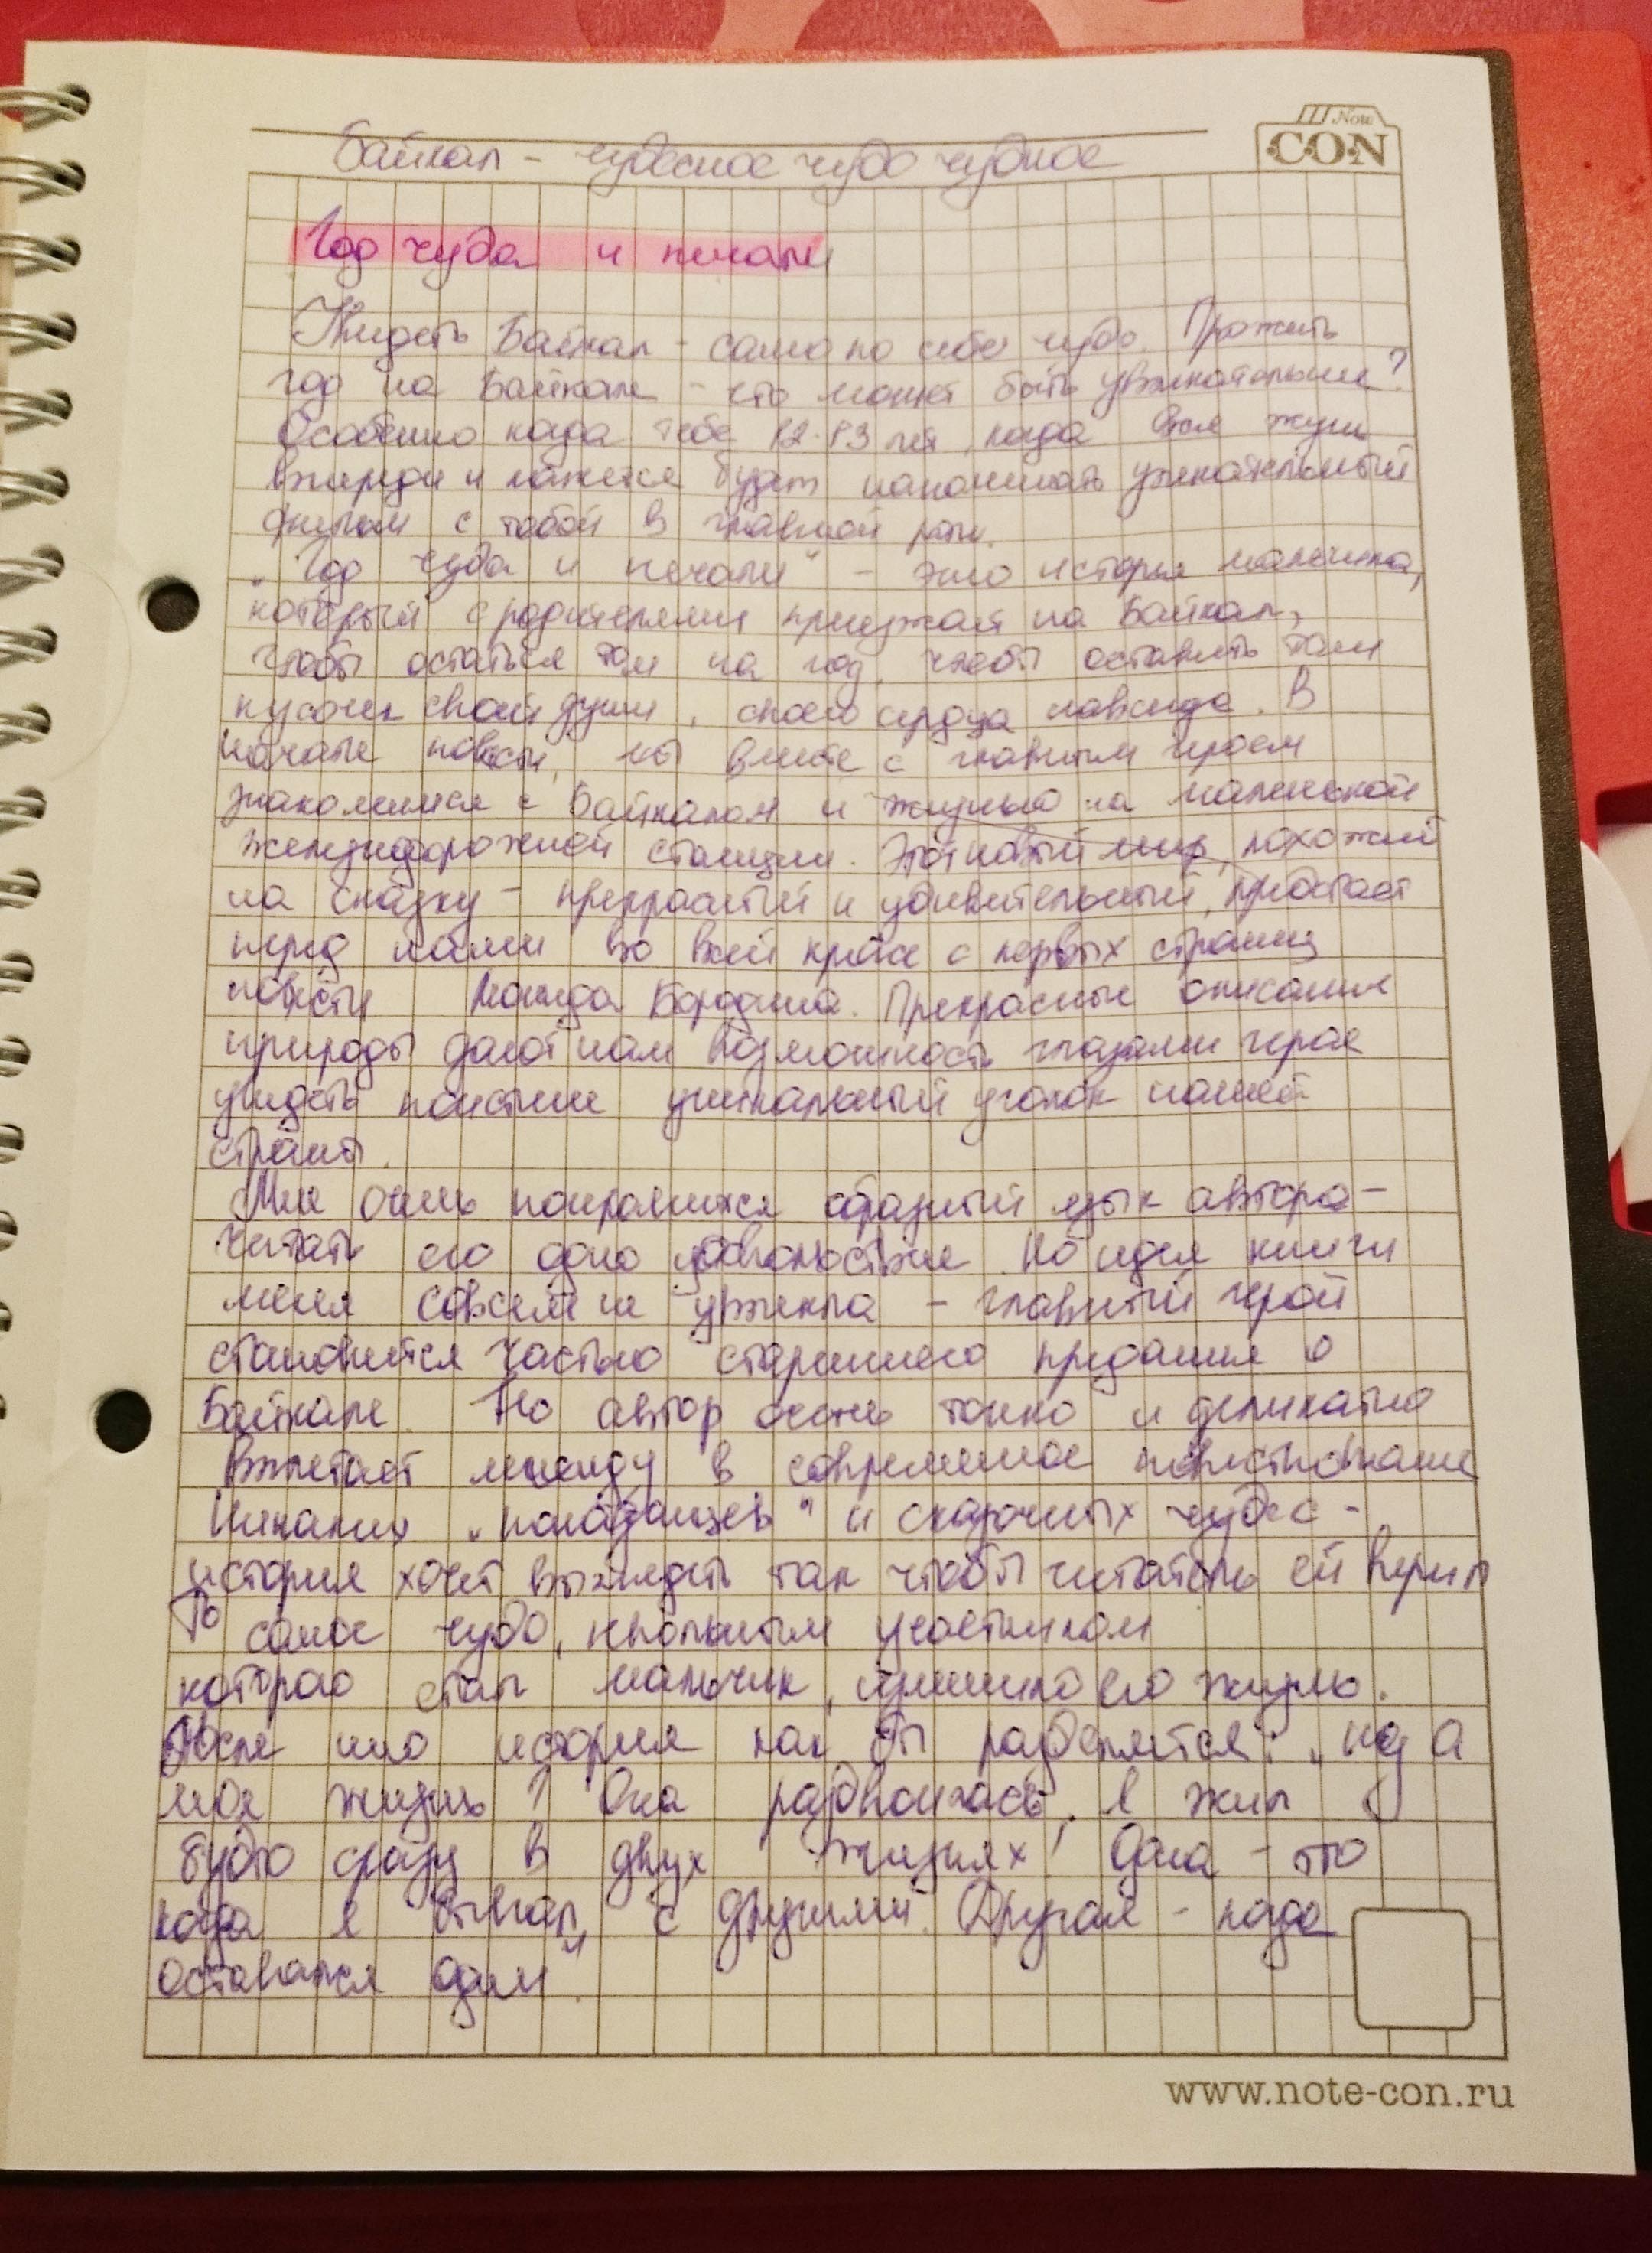 Now
CON
Байкал - чудесное чудо чудное
Год чуда и печали
Увидеть Байкал - само по себе чудо. Прожить
год на Байкале - что может быть увлекательнее?
Особенно когда тебе 12-13 лет, когда вся жизнь
впереди и кажется будет напоминать увлекательный
фильм с тобой в главной роли.
"Год чуда и печали" - это история мальчика,
который с родителями приезжает на Байкал,
чтобы остаться там на год, чтобы оставить там
кусочек своей души, своего сердца навсегда. В
начале повести, мы вместе с главным героем
знакомимся с Байкалом и жизнью на маленькой
железнодорожной станции. Этот новый мир, похожий
на сказку - прекрасный и удивительный, предстает
перед нами во всей красе с первых страниц
повести Леонида Бородина. Прекрасные описания
природы дают нам возможность глазами героя
увидеть поистине уникальный уголок нашей
страны.
Мне очень понравился образный язык автора -
читать его одно удовольствие. Но идея книги
меня совсем не увлекла - главный герой
становится частью старинного предания о
Байкале. Но автор очень тонко и деликатно
вплетает легенду в современное повествование
Никаких "попаданцев" и сказочных чудес -
история хочет выглядеть так чтобы читатель ей верил
То самое чудо, невольным участником
которого стал мальчик, изменило его жизнь.
После него история как бы разделяется: "Ну а
моя жизнь? Она раздвоилась, я жил
будто сразу в двух жизнях! Одна - это
когда я бывал с другими. Другая - когда
оставался один".
www.note-con.ru